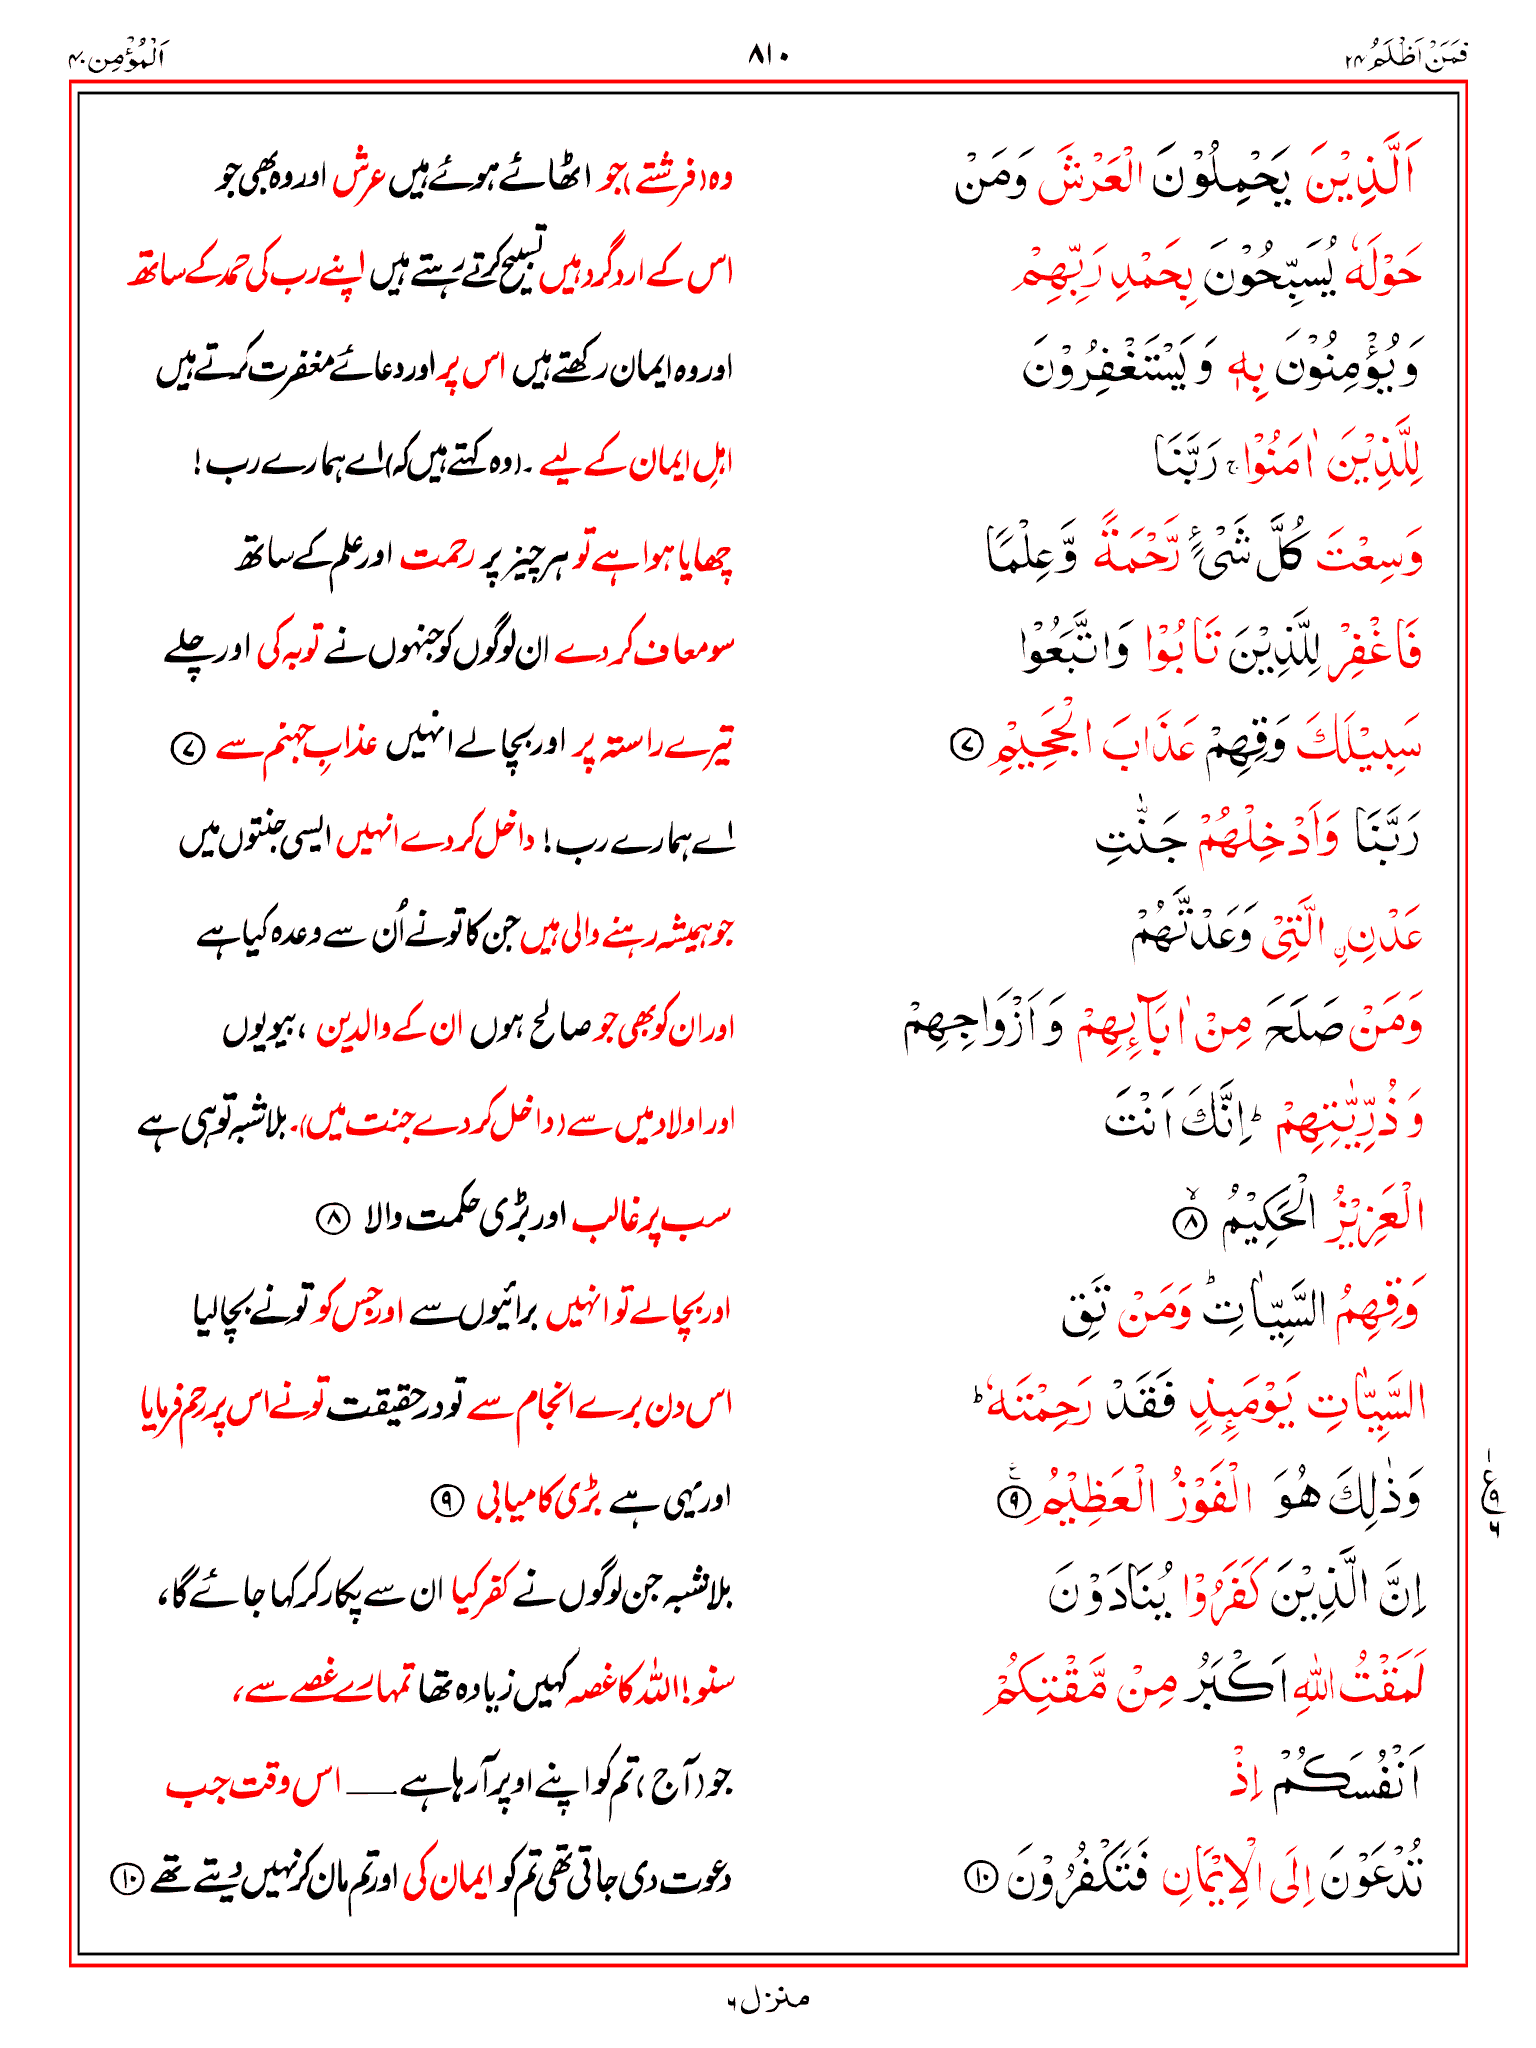 فَمَنْ اَظْلَمُ ۲۴
۸۱۰
اَلْمُؤْمِن ۴۰
اَلَّذِيْنَ يَحْمِلُوْنَ الْعَرْشَ وَمَنْ
وہ (فرشتے) جو اٹھائے ہوئے ہیں عرش اور وہ بھی جو
حَوْلَهٗ يُسَبِّحُوْنَ بِحَمْدِ رَبِّهِمْ
اس کے ارد گرد ہیں تسبیح کرتے رہتے ہیں اپنے رب کی حمد کے ساتھ
وَيُؤْمِنُوْنَ بِهٖ وَيَسْتَغْفِرُوْنَ
اور وہ ایمان رکھتے ہیں اس پر اور دعائے مغفرت کرتے ہیں
لِلَّذِيْنَ اٰمَنُوْا ۚ رَبَّنَا
اہلِ ایمان کے لیے ۔(وہ کہتے ہیں کہ) اے ہمارے رب!
وَسِعْتَ كُلَّ شَیْءٍ رَّحْمَةً وَّعِلْمًا
چھایا ہوا ہے تو ہر چیز پر رحمت اور علم کے ساتھ
فَاغْفِرْ لِلَّذِيْنَ تَابُوْا وَاتَّبَعُوْا
سو معاف کر دے ان لوگوں کو جنہوں نے توبہ کی اور چلے
سَبِيْلَكَ وَقِهِمْ عَذَابَ الْجَحِيْمِ ۷
تیرے راستہ پر اور بچالے انہیں عذابِ جہنم سے ۷
رَبَّنَا وَاَدْخِلْهُمْ جَنّٰتِ
اے ہمارے رب! داخل کر دے انہیں ایسی جنتوں میں
عَدْنِ ۨ الَّتِیْ وَعَدْتَّهُمْ
جو ہمیشہ رہنے والی ہیں جن کا تو نے اُن سے وعدہ کیا ہے
وَمَنْ صَلَحَ مِنْ اٰبَآئِهِمْ وَاَزْوَاجِهِمْ
اور ان کو بھی جو صالح ہوں ان کے والدین ، بیویوں
وَذُرِّيّٰتِهِمْ ؕ اِنَّكَ اَنْتَ
اور اولاد میں سے (داخل کر دے جنت میں)۔ بلاشبہ تو ہی ہے
الْعَزِيْزُ الْحَكِيْمُ ۸ۙ
سب پر غالب اور بڑی حکمت والا ۸
وَقِهِمُ السَّيِّاٰتِ ؕ وَمَنْ تَقِ
اور بچالے تو انہیں برائیوں سے اور جس کو تو نے بچا لیا
السَّيِّاٰتِ يَوْمَئِذٍ فَقَدْ رَحِمْتَهٗ ؕ
اس دن برے انجام سے تو در حقیقت تو نے اس پر رحم فرمایا
وَذٰلِكَ هُوَ الْفَوْزُ الْعَظِيْمُ ۹
اور یہی ہے بڑی کامیابی ۹
ع ۹ ۶
اِنَّ الَّذِيْنَ كَفَرُوْا يُنَادَوْنَ
بلاشبہ جن لوگوں نے کفر کیا ان سے پکار کر کہا جائے گا،
لَمَقْتُ اللّٰهِ اَكْبَرُ مِنْ مَّقْتِكُمْ
سنو! اللہ کا غصہ کہیں زیادہ تھا تمہارے غصے سے،
اَنْفُسَكُمْ اِذْ
جو (آج) تم کو اپنے اوپر آ رہا ہے ـــــ اس وقت جب
تُدْعَوْنَ اِلَى الْاِيْمَانِ فَتَكْفُرُوْنَ ۱۰
دعوت دی جاتی تھی تم کو ایمان کی اور تم مان کر نہیں دیتے تھے ۱۰
منزل ۶